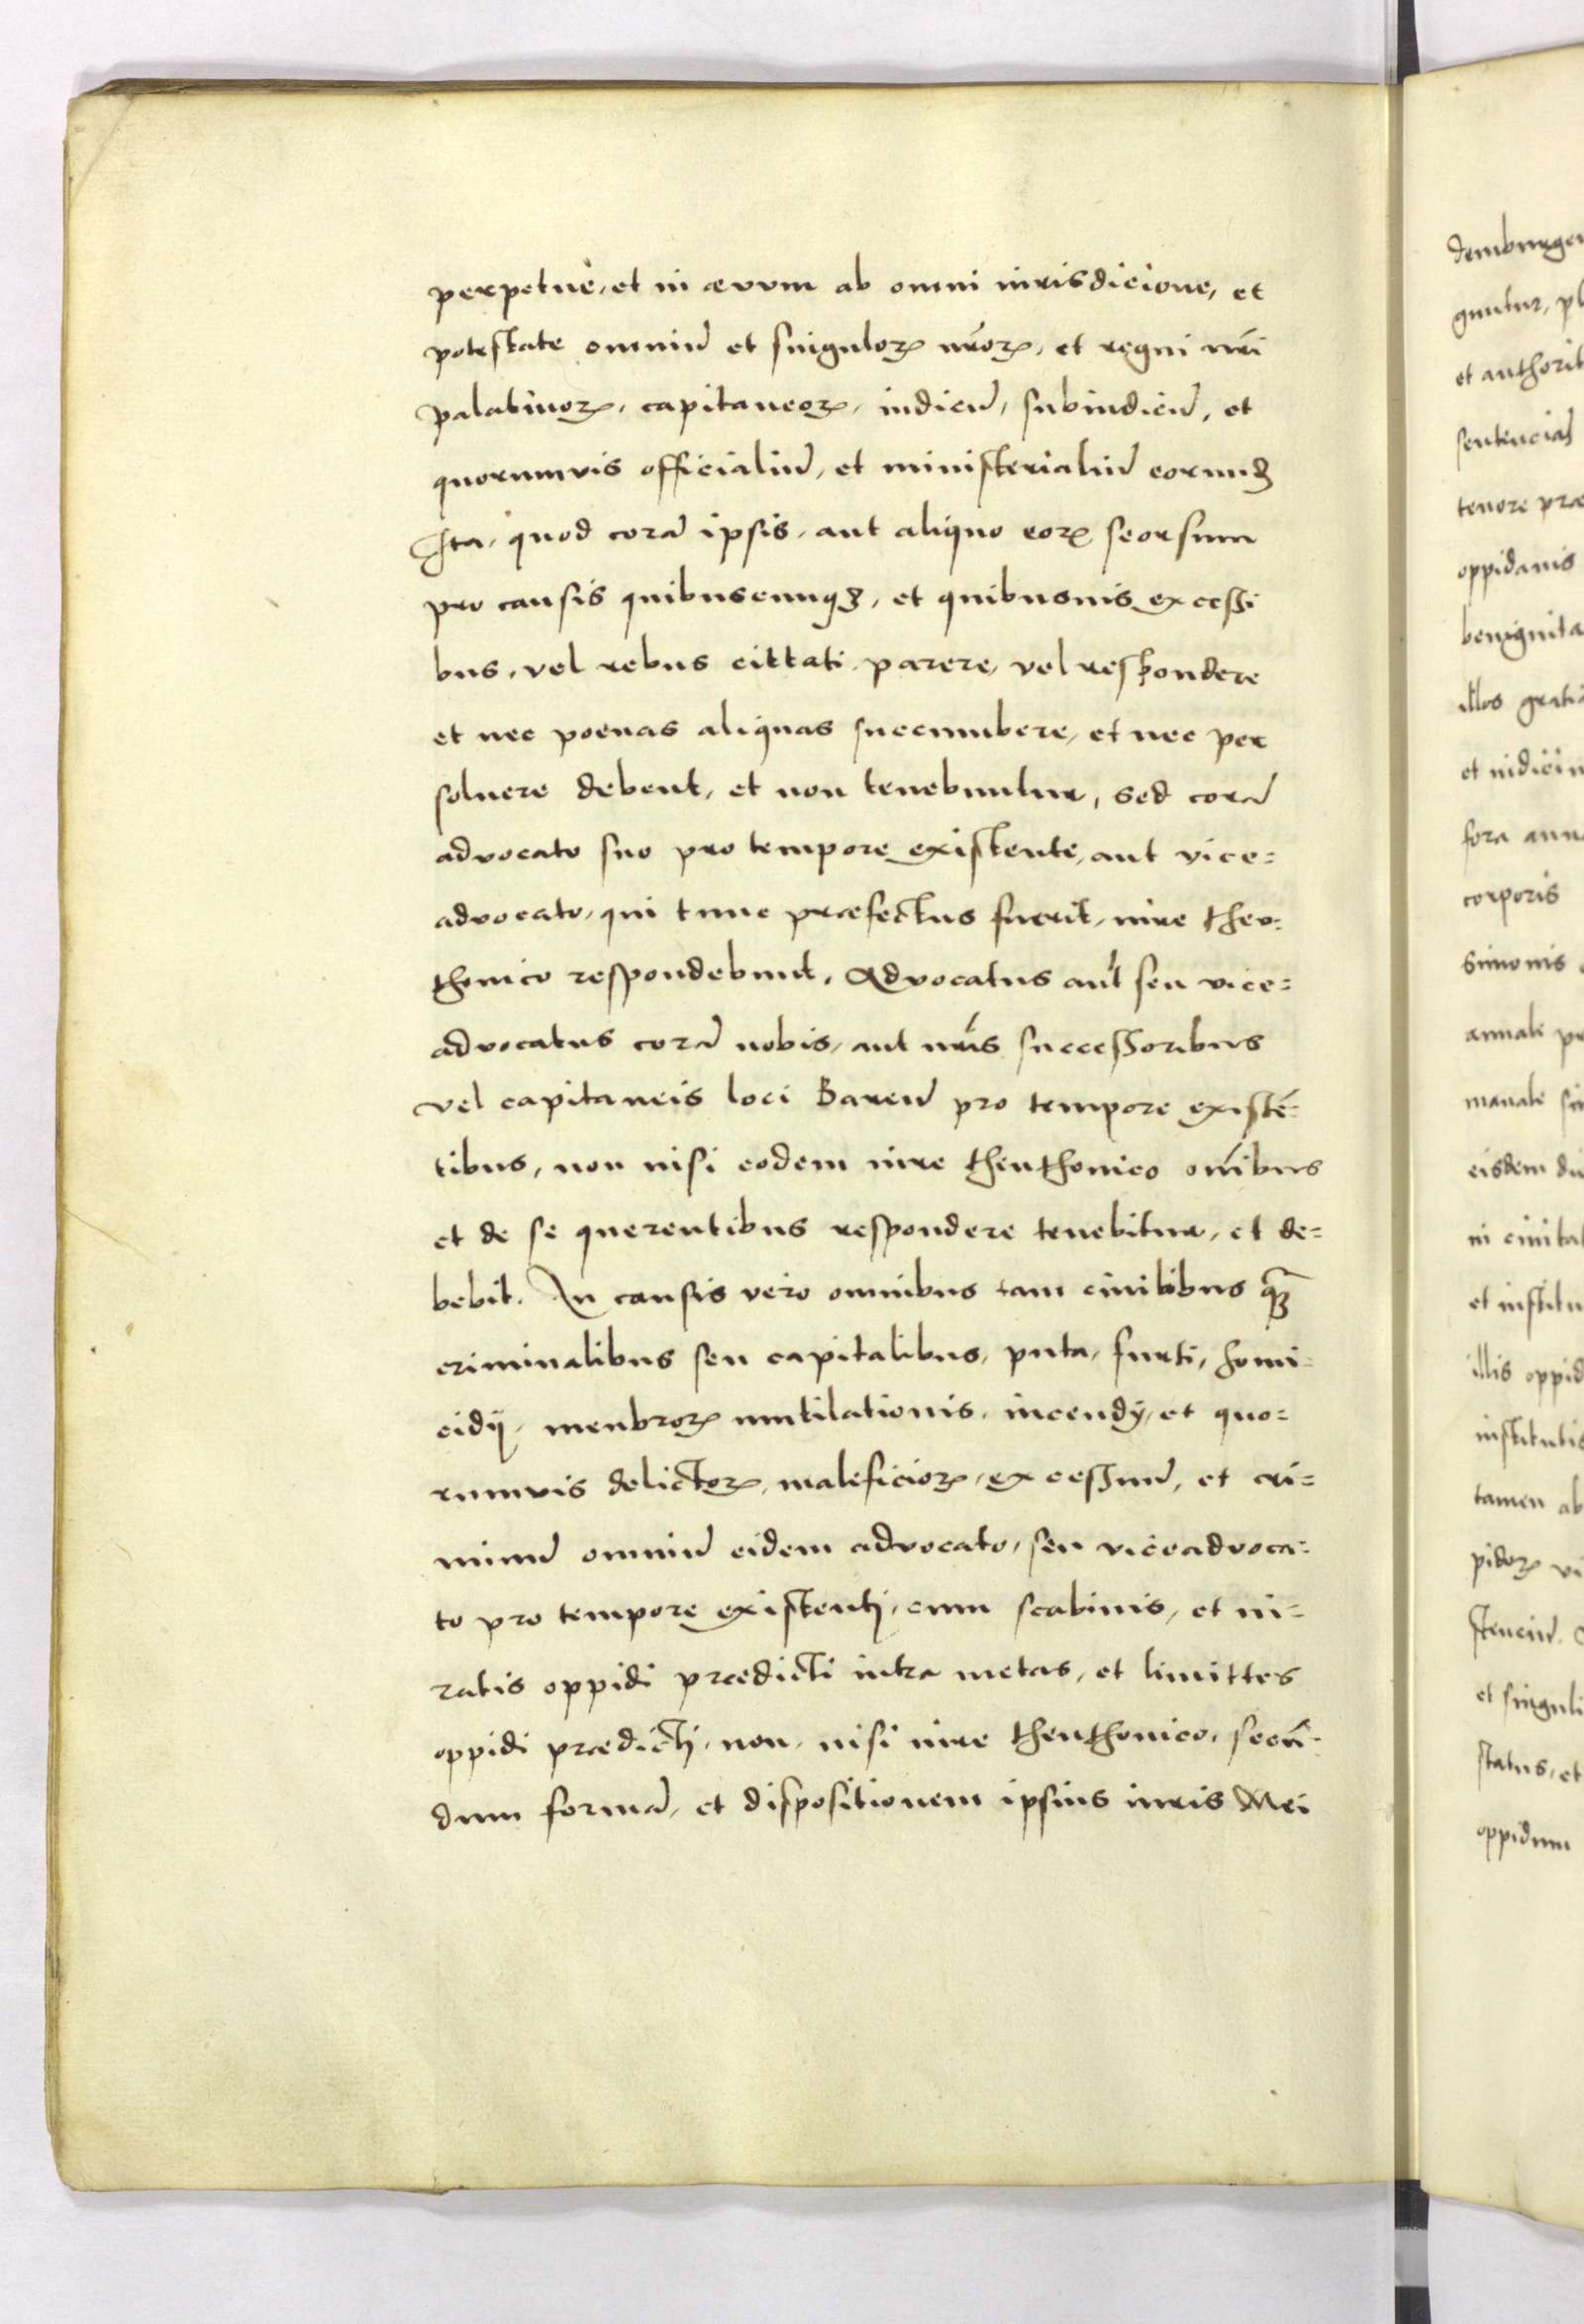 perpetuè, et in ævum ab omni iurisdicione, et
potestate omniū et singuloꝝ nr̄oꝝ, et regni nr̄i
palatinoꝝ, capitaneoꝝ, iudicū, subiudicū, et
quorumvis officialiū, et ministerialiū eorundꝫ
Ita, quod corā ipsis, aut aliquo eoꝝ seorsum
pro causis quibuscunqꝫ, et quibusuis excessi
bus, vel rebus cittati parere, vel respondere
et nec poenas aliquas succumbere, et nec per
soluere debent, et non tenebuntur, sed corā
advocato suo pro tempore existente, aut vice=
advocato, qui tunc præfectus fuerit, iure theo=
thonico respondebunt. Advocatus aut̄ seu vice=
advocatus corā nobis, aut nr̄is successoribus
vel capitaneis loci Baren̄ pro tempore existē=
tibus, non nisi eodem iure theuthonico om̄ibus
et de se querentibus respondere tenebitur, et de=
bebit. In causis vero omnibus tam ciuilibus qꝫ̄
criminalibus seu capitalibus, puta, furti, homi=
cidij, menbroꝝ mutilationis, incendij, et quo=
rumvis delictoꝝ, maleficioꝝ, excessuū, et cri=
minū omniū eidem advocato, seu viceadvoca=
to pro tempore existenti, cum scabinis, et iu=
ratis oppidi prædicti intra metas, et limittes
oppidi prædicti, non, nisi iure theuthonico, secū=
dum formā, et dispositionem ipsius iuris Mei
demburgen
guntur, pl
et authorit
sentencias
tenore præ
oppidanis
benignita
illos gratia
et iudiciu
fora annu
corporis
Simonis
annali pr
manali si
eisdem du
in ciuitat
et institu
illis oppid
institutis
tamen ab
pidoꝝ vi
stenciū.
et singuli
status, et
oppidum